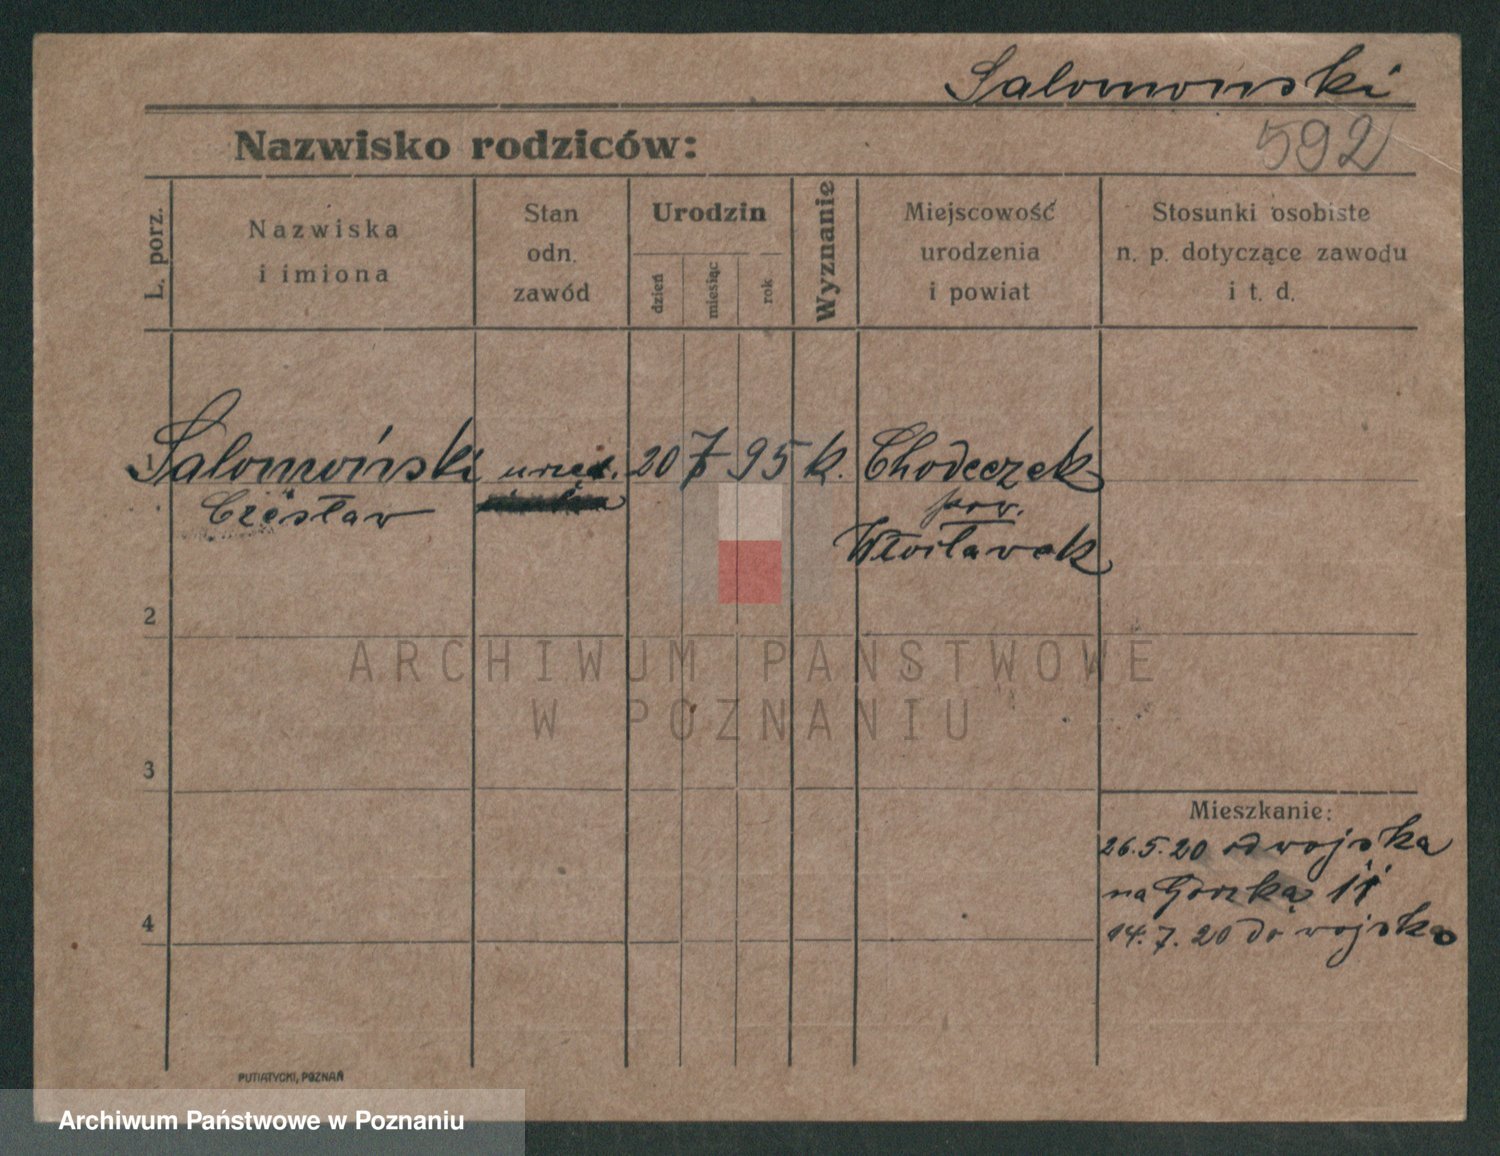 Salomonski
592
Nazwisko rodziców:
L. porz.
Nazwiska
i imiona
Stan
odn.
zawód
Urodzin
dzień
miesiąc
rok
Wyznanie
Miejscowość
urodzenia
i powiat
Stosunki osobiste
n. p. dotyczące zawodu
i t. d.
1 Salomoński urzęd. 20 7 95 k. Chodeczek
Czesław pow.
Włocławek
2
ARCHIWUM PAŃSTWOWE
W POZNANIU
3
Mieszkanie:
26.5.20 od wojska
na Górską 11
4
14.7.20 do wojska
PUTIATYCKI, POZNAŃ
Archiwum Państwowe w Poznaniu